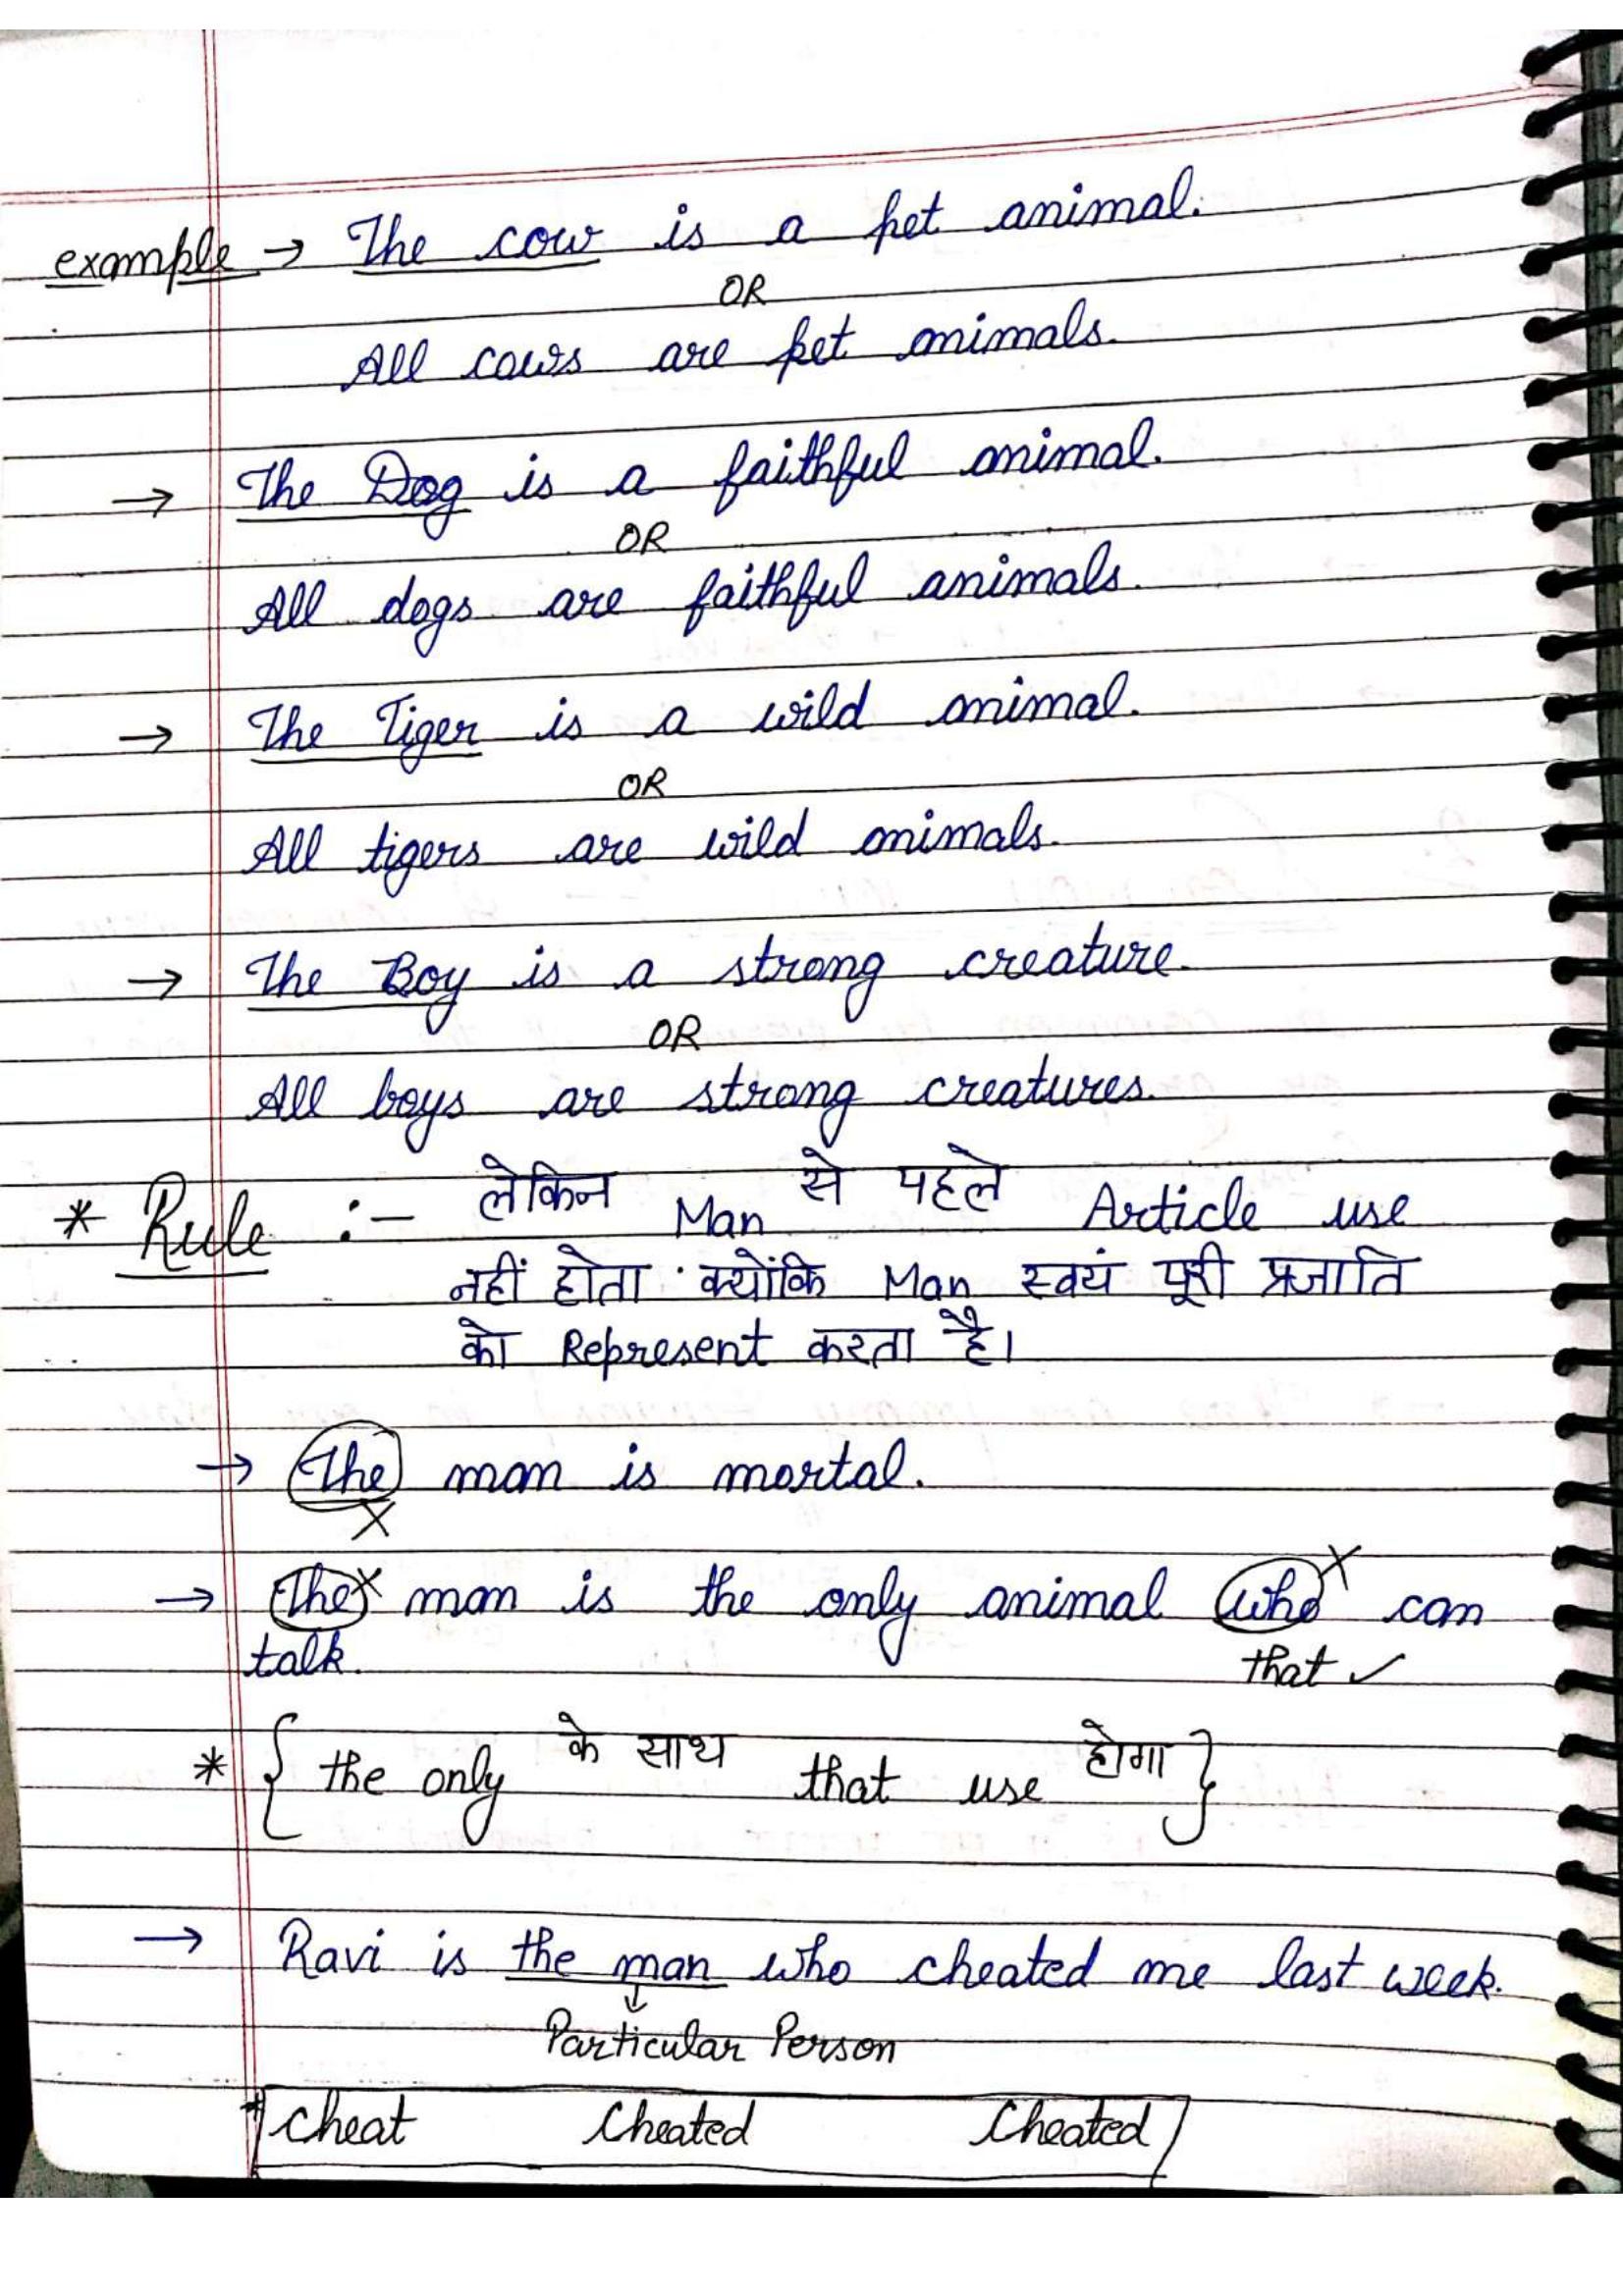 example → The cow is a pet animal.
OR
All cows are pet animals.
→ The Dog is a faithful animal.
OR
All dogs are faithful animals.
→ The Tiger is a wild animal.
OR
All tigers are wild animals.
→ The Boy is a strong creature.
OR
All boys are strong creatures.
* Rule :- लेकिन Man से पहले Article use
नहीं होता क्योंकि Man स्वयं पूरी प्रजाति
को Represent करता है।
→ The man is mortal.
X
→ The X man is the only animal who X can
talk. that ✓
* { the only के साथ that use होगा }
→ Ravi is the man who cheated me last week.
↓
Particular Person
* cheat Cheated Cheated